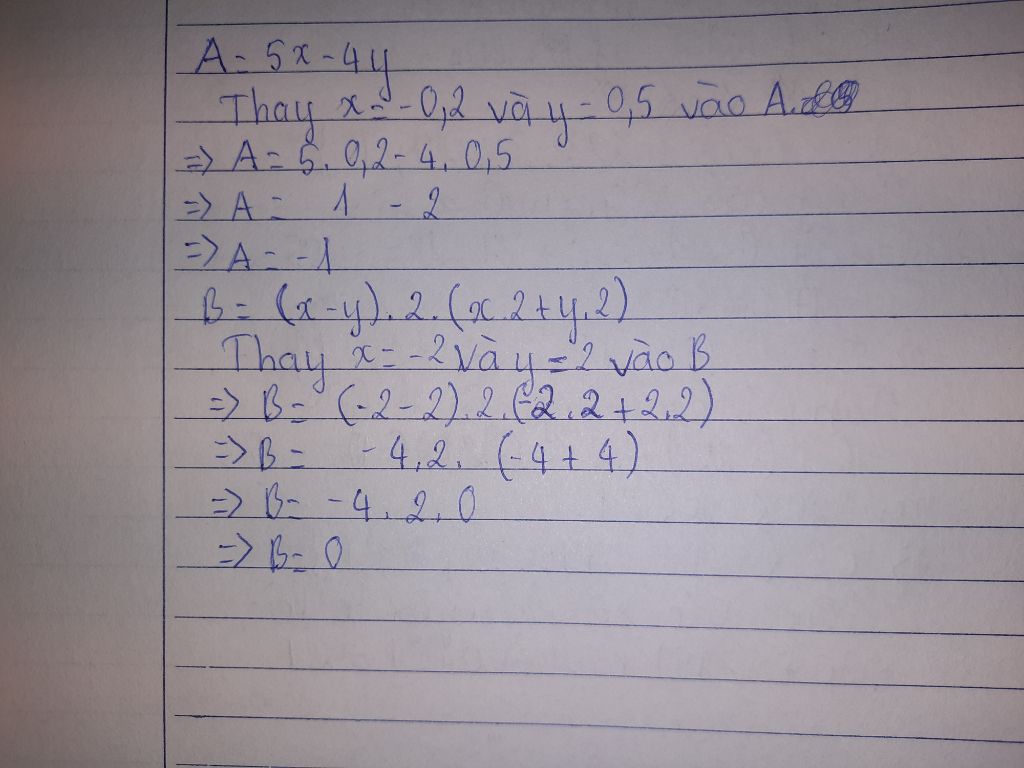 A = 5x - 4y
Thay x = -0,2 và y = 0,5 vào A.
=> A = 5. 0,2 - 4. 0,5
=> A = 1 - 2
=> A = -1
B = (x - y). 2. (x.2 + y.2)
Thay x = -2 và y = 2 vào B
=> B = (-2 - 2). 2. (-2.2 + 2.2)
=> B = -4.2. (-4 + 4)
=> B = -4. 2. 0
=> B = 0